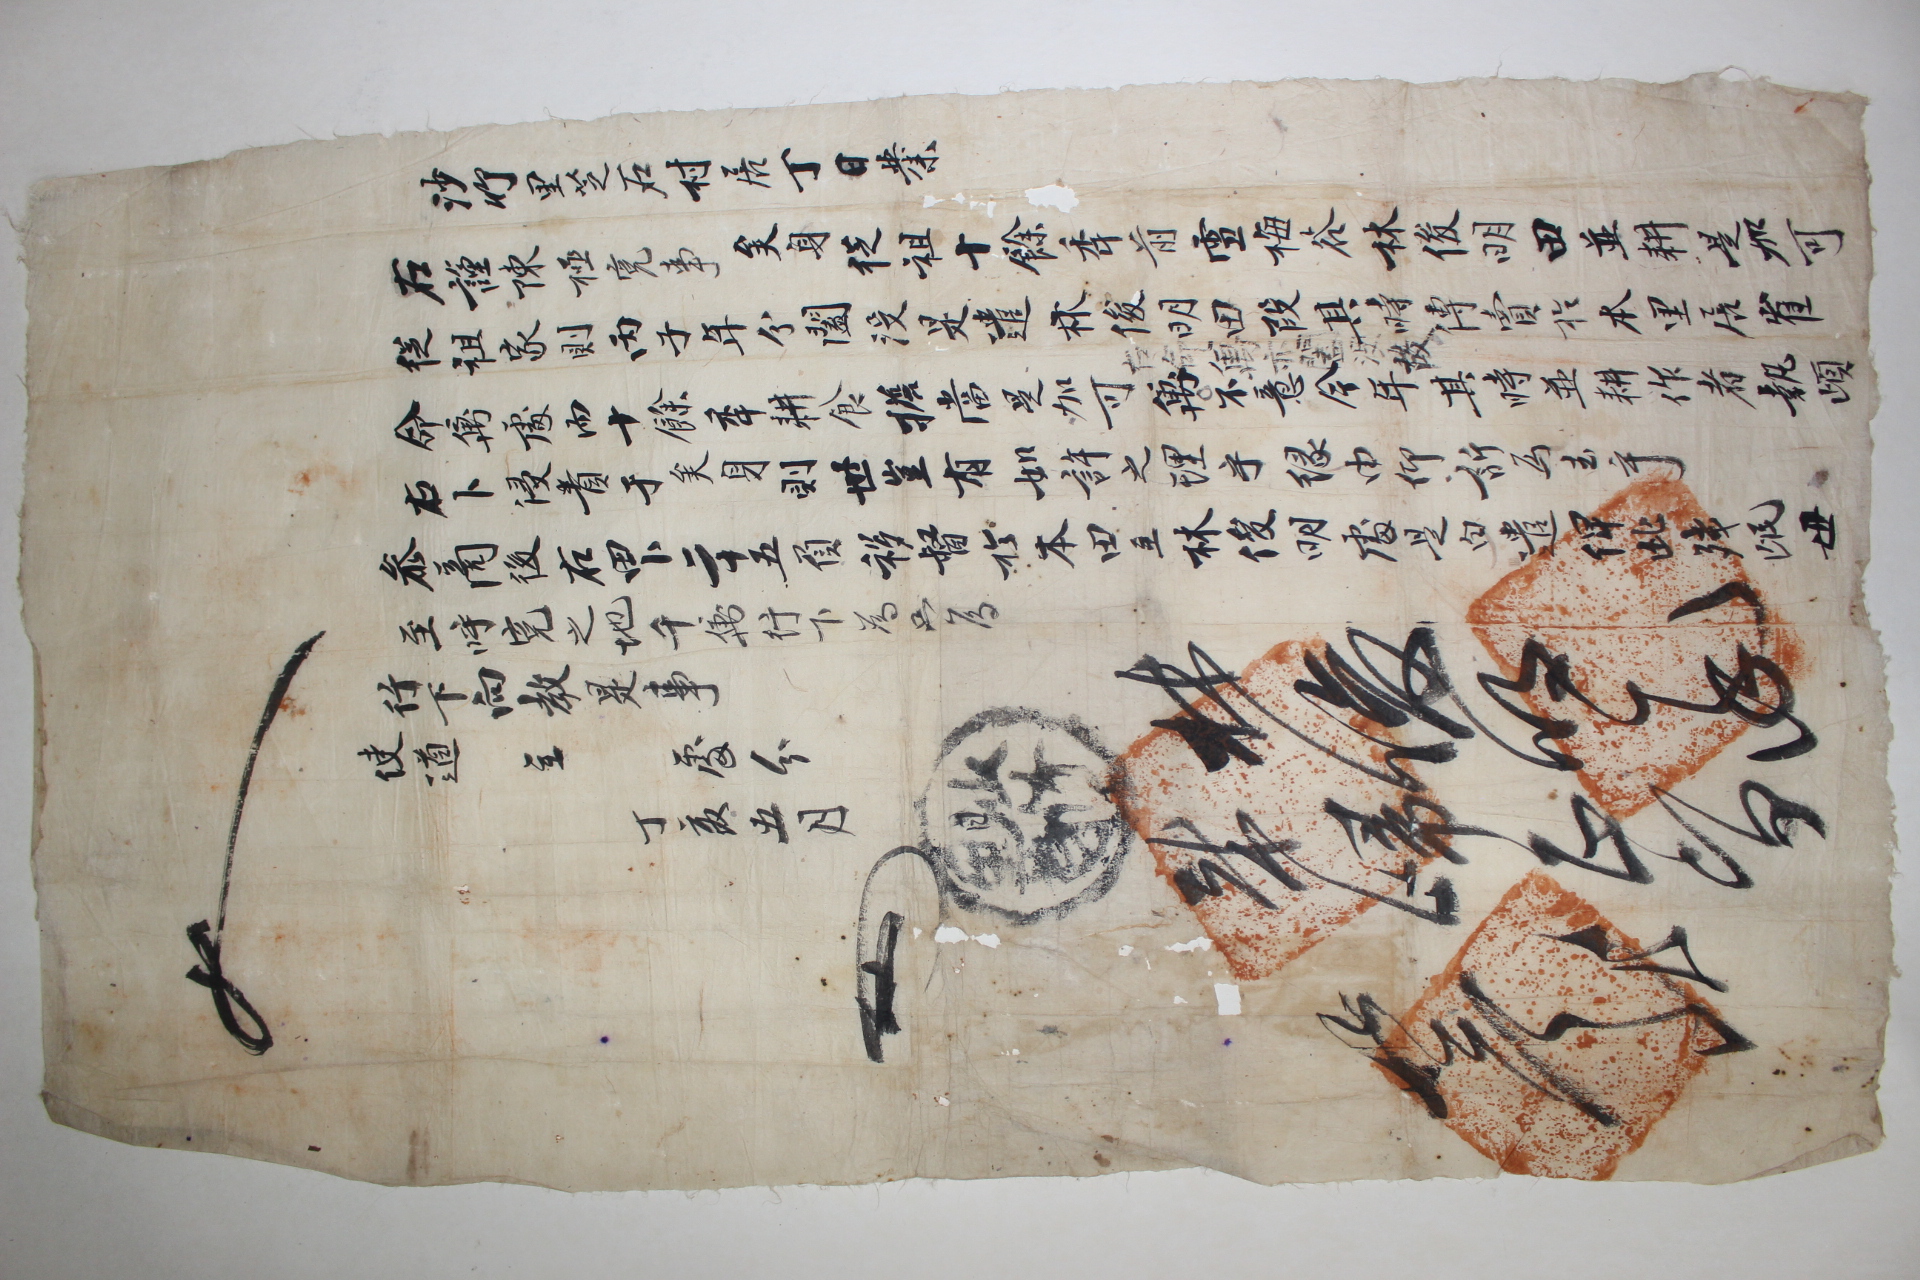 沙竹里芝石村居丁日業
右謹陳極寃事矣身從祖十餘年前雪梅谷林俊明田並耕是加可
從祖家則丙子年分闔沒是遣林俊明田段其時傳賣於本里居崔
右命雋亦闔沒故
命雋處而十餘年耕食擔當是加可不意今年其時並耕作者執頉
右卜侵責于矣身則世豈有如許之理乎緣由仰訴爲去乎
叅商後右田卜二十五負移督於本田主林俊明處是白遣俾此殘氓毋
至呼寃之地千萬行下爲只爲
行下向教是事
使道 主 處分
丁亥五月
林俊明